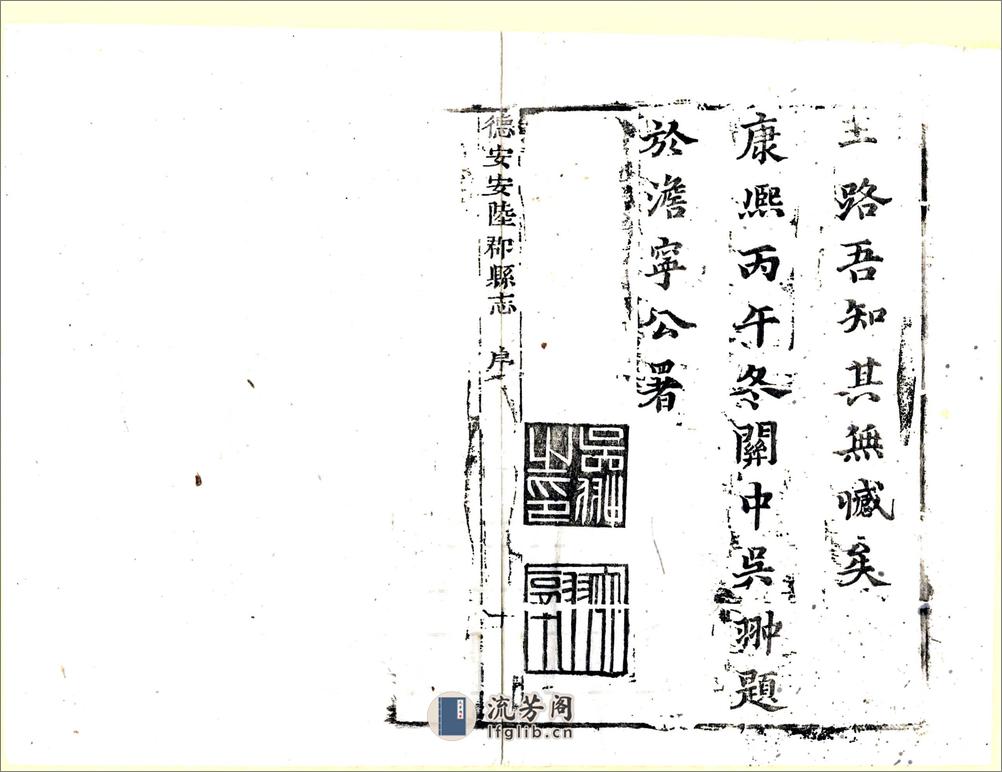 王路吾知其無憾矣
康熙丙午冬關中吳翀題
於澹寧公署
吳翀之印
德安安陸郡縣志 序
十
流芳阁
lfglib.cn